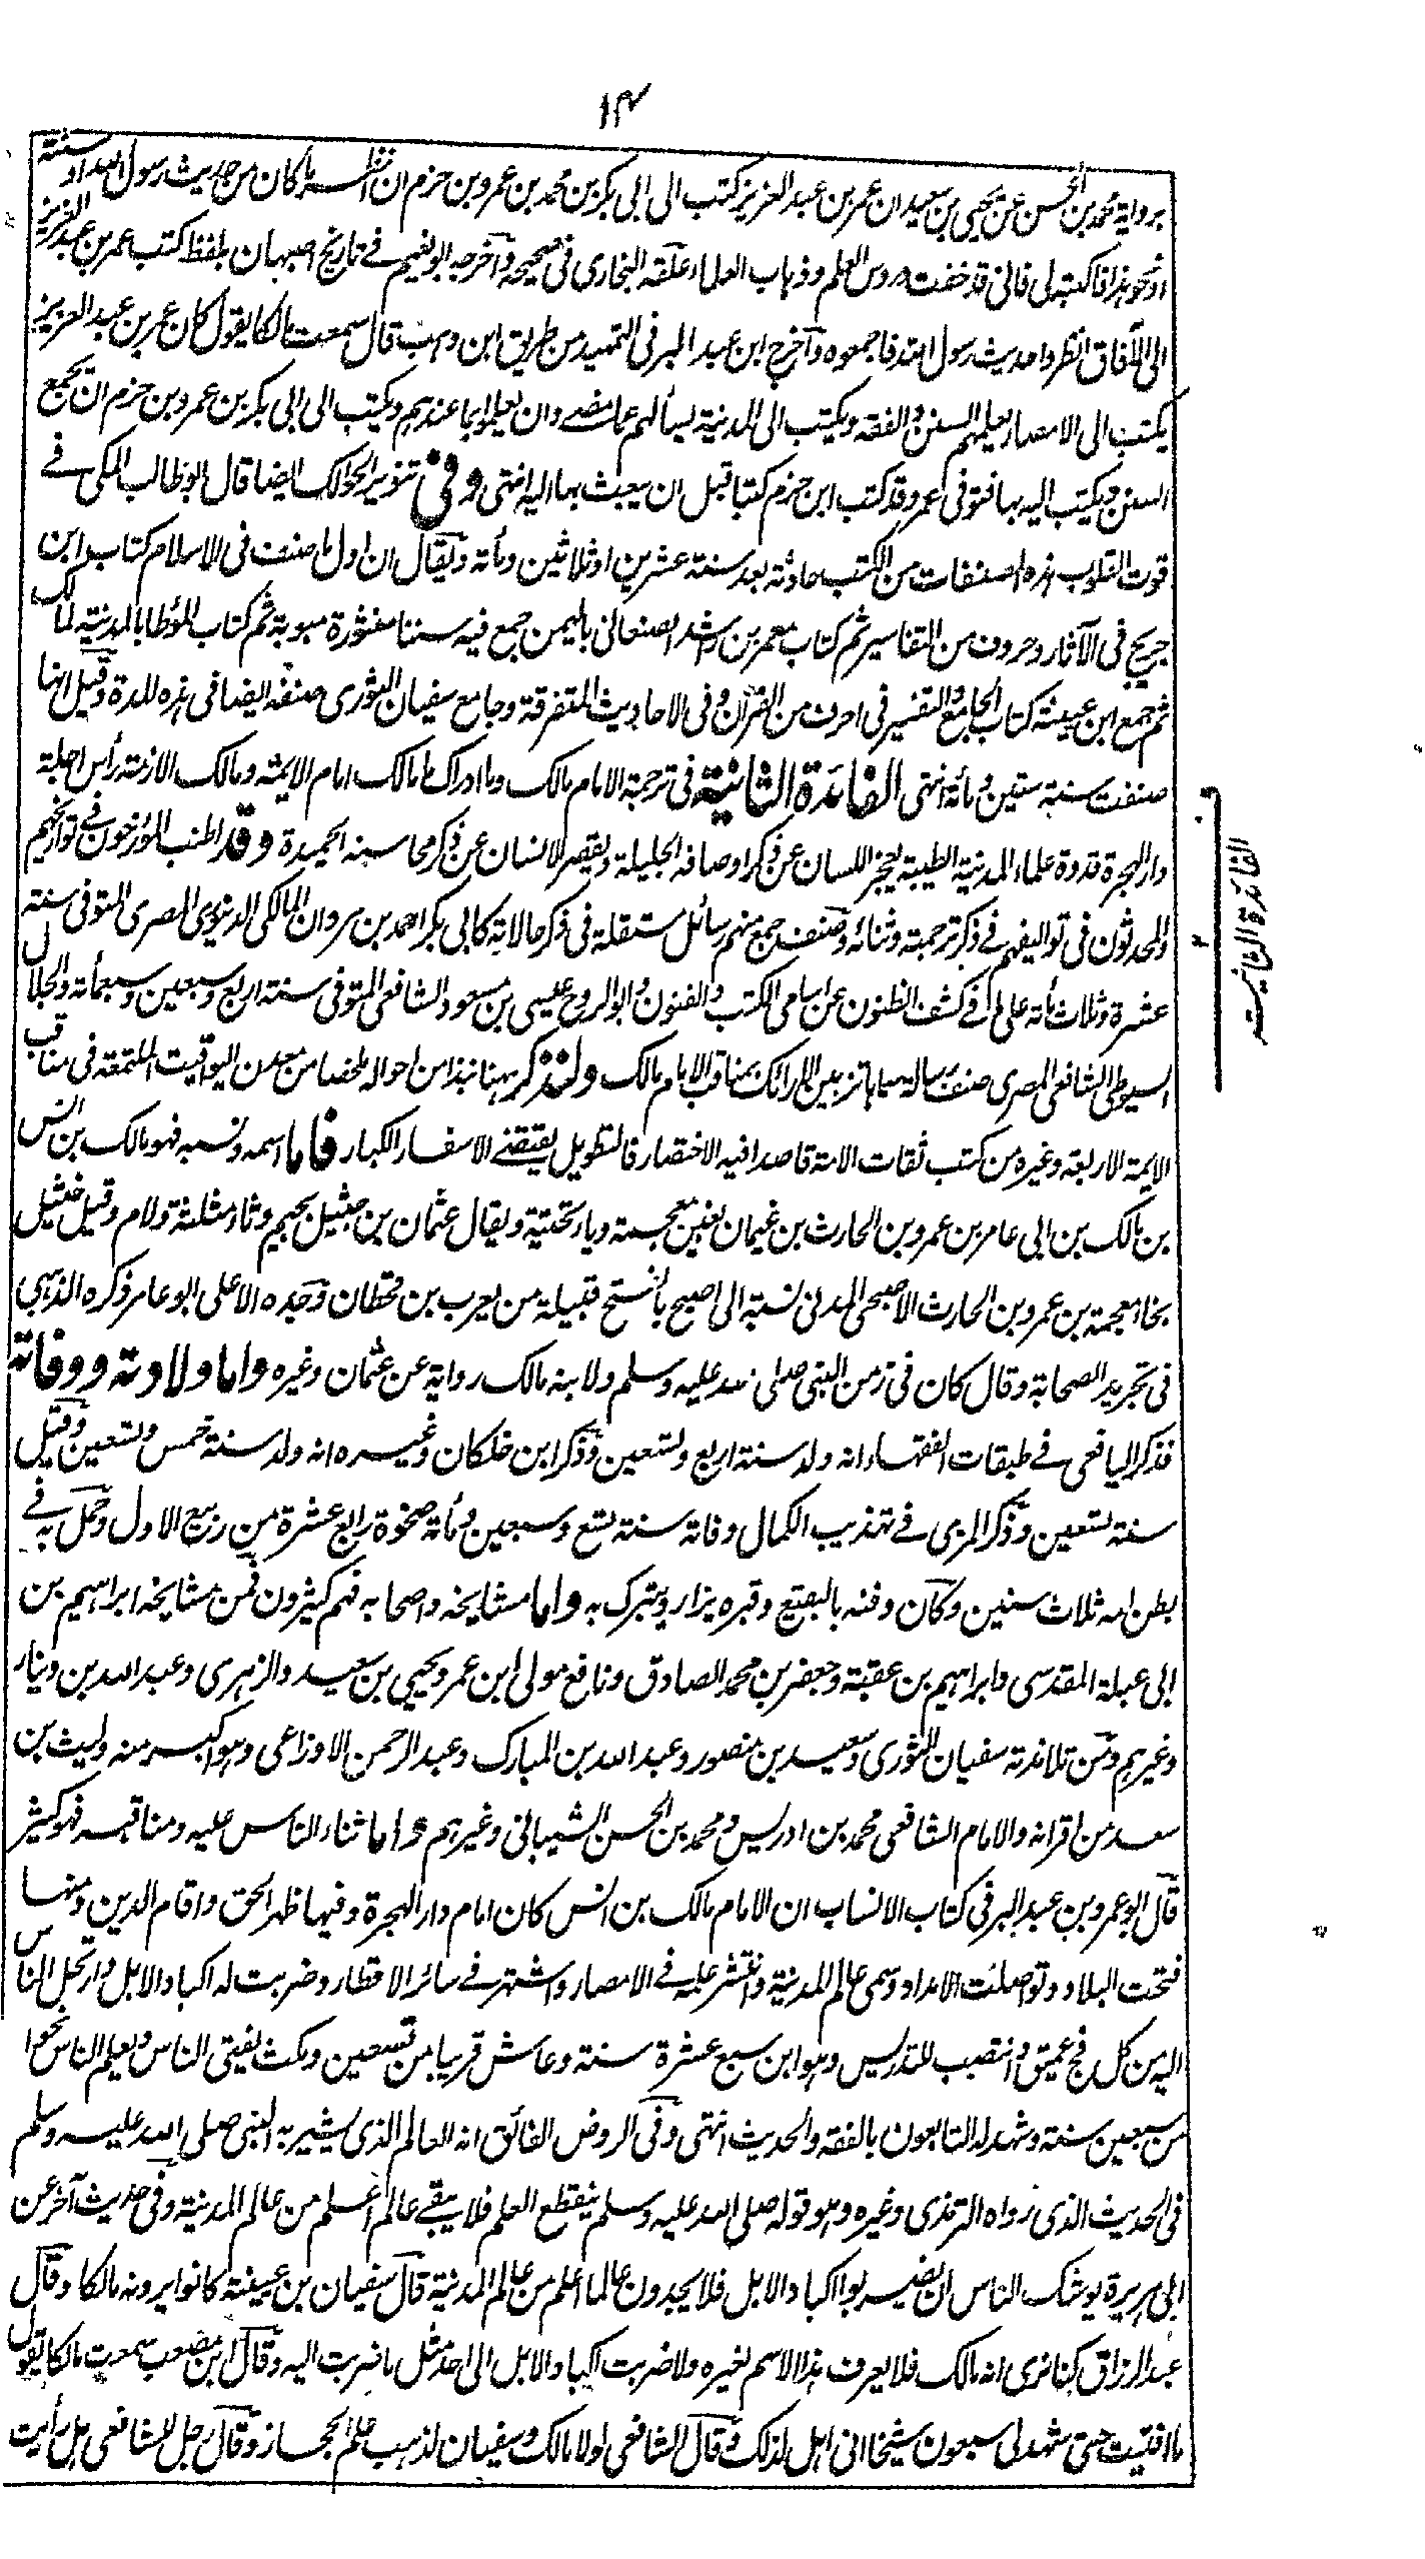 ١٤
برواية محمد بن الحسن عن يحيى بن سعيد ان عمر بن عبد العزيز كتب الى ابى بكر بن محمد بن عمرو بن حزم ان انظر ما كان من حديث رسول الله او سنته
او نحو هذا فاكتبه لى فانى قد خفت دروس العلم وذهاب العلماء علقه البخارى فى صحيحه وآخرجه ابو نعيم فے تاريخ اصبهان بلفظ كتب عمر بن عبد العزيز
الى الآفاق انظروا حديث رسول الله فاجمعوه وآخرج ابن عبد البر فى التمهيد من طريق ابن وهب قال سمعت مالكا يقول كان عمر بن عبد العزيز
يكتب الى الامصار يعلمهم السنن والفقه ويكتب الى المدنية يسألهم عما مضے وان يعلموا بما عندهم ويكتب الى ابى بكر بن عمرو بن حزم ان يجمع
السنن ويكتب اليه بها فتوفى عمر وقد كتب ابن حزم كتبا قبل ان يبعث بها اليه انتهى وفى تنوير الحوالك ايضا قال ابو طالب المكى فے
قوت القلوب هذه المصنفات من الكتب حادثة بعد سنة عشرين او ثلاثين ومأته ويقال ان اول ما صنف فى الاسلام كتاب ابن
جريج فى الآثار وحروف من التفاسير ثم كتاب معمر بن راشد الصنعانى باليمن جمع فيه سننا منثورة مبوبة ثم كتاب المؤطا بالمدينة لمالك
ثم جمع ابن عيينة كتاب الجامع والتفسير فى احرف من القرآن وفى الاحاديث المتفرقة وجامع سفيان الثورى صنفه ايضا فى هذه المدة وقيل انها
صنفت سنة ستين ومأته انتهى الفائدة الثانية فى ترجمة الامام مالك وما ادراك ما مالك امام الايمة ومالك الازمة رأس اجلة
دار الهجرة قدوة علماء المدينة الطيبة يعجز اللسان عن ذكر اوصافه الجليلة ويقصر الانسان عن ذكر محاسنه الحميدة وقد اطنب المؤرخون فے تواريخهم
والمحدثون فى تواليفهم فے ذكر ترجمته وثنائه وصنف جمع منهم رسائل مستقلة فى ذكر حالاته كابى بكر احمد بن مروان المالكى الدينورى المصرى المتوفى سنة
عشرة وثلاث مأته على ما فے كشف الظنون عن اسامى الكتب والفنون وابو الروح عيسى بن مسعود الشافعى المتوفى سنة اربع وسبعين وسبعمأته والجلال
السيوطى الشافعى المصرى صنف رسالة سماها تزيين الارائك بمناقب الامام مالك ولنذكر ههنا نبذا من احواله ملخصا من معدن اليواقيت الملتمعة فى مناقب
الايمة الاربعة وغيره من كتب ثقات الامة قاصدا فيه الاختصار فالتطويل يقتضے الاسفار الكبار فاما اسمه ونسبه فهو مالك بن انس
بن مالك بن ابى عامر بن عمرو بن الحارث بن غيمان بغين معجمة وياء تحتية ويقال عثمان بن جثيل بجيم وثاء مثلثة ولام وقيل خثيل
بخاء معجمة بن عمرو بن الحارث الاصبحى المدنى نسبة الى اصبح بالفتح قبيلة من يعرب بن قحطان وجده الاعلى ابو عامر ذكره الذهبى
فى تجريد الصحابة وقال كان فى زمن النبى صلى الله عليه وسلم ولابنه مالك رواية عن عثمان وغيره واما ولادته ووفاته
فذكر اليافعى فے طبقات الفقهاء انه ولد سنة اربع وتسعين وذكر ابن خلكان وغيره انه ولد سنة خمس وتسعين وقيل
سنة تسعين وذكر المزى فے تهذيب الكمال وفاته سنة تسع وسبعين ومأته ضحوة رابع عشرة من ربيع الاول وحمل به فے
بطن امه ثلاث سنين وكان دفنه بالبقيع وقبره يزار ويتبرك به واما مشايخه واصحابه فهم كثيرون فمن مشايخه ابراهيم بن
ابى عبلة المقدسى وابراهيم بن عقبة وجعفر بن محمد الصادق ونافع مولى ابن عمر ويحيى بن سعيد والزهرى وعبد الله بن دينار
وغيرهم ومن تلامذته سفيان الثورى وسعيد بن منصور وعبد الله بن المبارك وعبد الرحمن الاوزاعى وهو اكبر منه وليث بن
سعد من اقرانه والامام الشافعى محمد بن ادريس ومحمد بن الحسن الشيبانى وغيرهم واما ثناء الناس عليه ومناقبه فهو كثير
قال ابو عمرو بن عبد البر فى كتاب الانساب ان الامام مالك بن انس كان امام دار الهجرة وفيها ظهر الحق واقام الدين ومنها
فتحت البلاد وتواصلت الامداد وسمى عالم المدينة وانتشر علمه فے الامصار واشتهر فے سائر الاقطار وضربت له اكباد الابل وارتحل الناس
اليه من كل فج عميق وانتصب للتدريس وهو ابن سبع عشرة سنة وعاش قريبا من تسعين ومكث يفتى الناس ويعلم الناس نحوا
من سبعين سنة وشهد له التابعون بالفقه والحديث انتهى وفى الروض الفائق انه العالم الذى يشير به النبى صلى الله عليه وسلم
فى الحديث الذى رواه الترمذى وغيره وهو قوله صلى الله عليه وسلم ينقطع العلم فلا يبقے عالم اعلم من عالم المدينة وفى حديث آخر عن
ابى هريرة يوشك الناس ان يضربوا اكباد الابل فلا يجدون عالما اعلم من عالم المدينة قال سفيان بن عيينة كانوا يرونه مالكا وقال
عبد الرزاق كنا نرى انه مالك فلا يعرف هذا الاسم لغيره ولا ضربت اكباد الابل الى احد مثل ما ضربت اليه وقال ابن مصعب سمعت مالكا يقول
ما افتيت حتى شهد لى سبعون شيخا انى اهل لذلك وقال الشافعى لولا مالك وسفيان لذهب علم الحجاز وقال رجل للشافعى هل رأيت
الفائدة الثانية